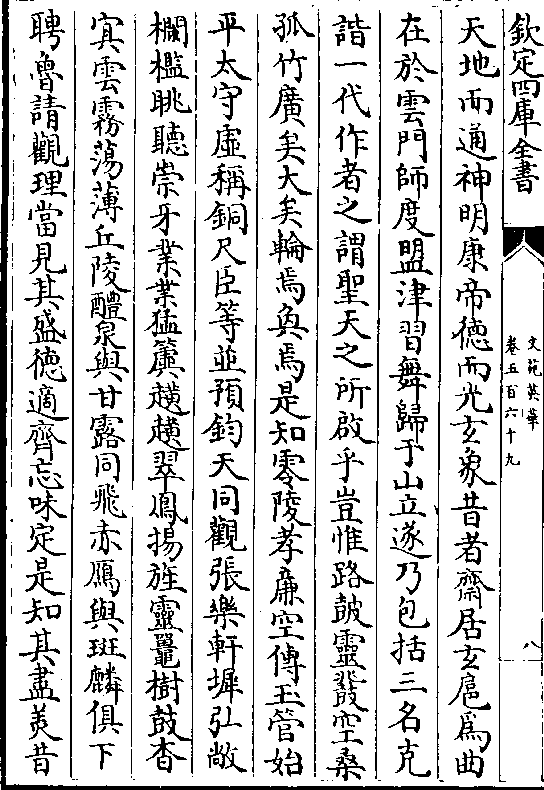 欽定四庫全書
文苑英華
卷五百六十九
八
天地而通神明康帝德而光玄象昔者齋居玄扈爲曲
在於雲門師度盟津習舞歸于山立遂乃包括三名克
諧一代作者之謂聖天之所啟乎豈惟路皷靈鼗空桑
孤竹廣矣大矣輪焉奐焉是知零陵孝廉空傳玉管始
平太守虛稱銅尺臣等並預鈞天同觀張樂軒墀弘敞
欄檻眺聽崇牙業業猛簴趪趪翠鳳揚旌靈鼉樹鼓杳
㝠雲霧蕩薄丘陵醴泉與甘露同飛赤鴈與斑麟俱下
聘魯請觀理當見其盛德適齊忘味定是知其盡美昔